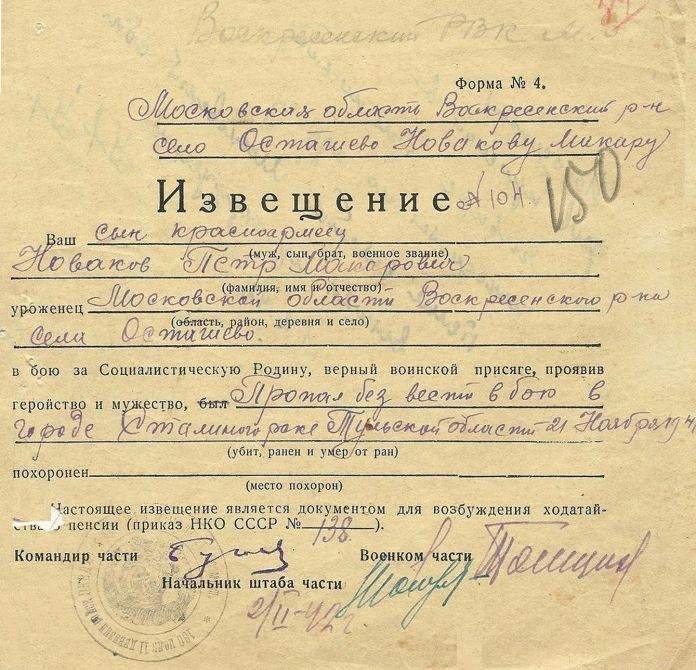 Воскресенский РВК М.О.
Форма № 4.
Московская область Воскресенский р-н
село Осташево Новакову Макару
Извещение № 104.
150
Ваш сын красноармеец
(муж, сын, брат, военное звание)
Новаков Петр Макарович
(фамилия, имя и отчество)
уроженец Московской области Воскресенского р-на
(область, район, деревня и село)
села Осташево.
в бою за Социалистическую Родину, верный воинской присяге, проявив
геройство и мужество, был Пропал без вести в бою в
городе Сталиногорске Тульской области 21 Ноября 1941
(убит, ранен и умер от ран)
похоронен
(место похорон)
Настоящее извещение является документом для возбуждения ходатай-
ства о пенсии (приказ НКО СССР № 138).
Командир части Военком части
Начальник штаба части
2/II-42г.